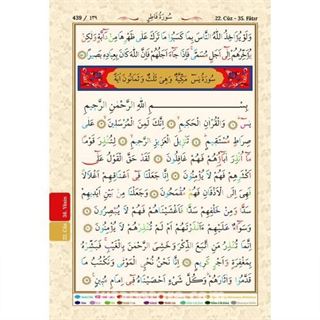 439 / ٤٣٩ سُورَةُ فَاطِرٍ 22. Cüz - 35. Fâtır
وَلَوْ يُؤَاخِذُ اللّٰهُ النَّاسَ بِمَا كَسَبُوا مَا تَرَكَ عَلٰى ظَهْرِهَا مِنْ دَٓابَّةٍ وَلٰكِنْ
يُؤَخِّرُهُمْ اِلٰٓى اَجَلٍ مُسَمًّى فَاِذَا جَٓاءَ اَجَلُهُمْ فَاِنَّ اللّٰهَ كَانَ بِعِبَادِهٖ بَصٖيرًا
سُورَةُ يٰسٓ مَكِّيَّةٌ وَهِيَ ثَلٰثٌ وَثَمَانُونَ اٰيَةً
بِسْمِ اللّٰهِ الرَّحْمٰنِ الرَّحٖيمِ
يٰسٓ وَالْقُرْاٰنِ الْحَكٖيمِ اِنَّكَ لَمِنَ الْمُرْسَلٖينَ عَلٰى
صِرَاطٍ مُسْتَقٖيمٍ تَنْزٖيلَ الْعَزٖيزِ الرَّحٖيمِ لِتُنْذِرَ قَوْمًا
مَٓا اُنْذِرَ اٰبَٓاؤُهُمْ فَهُمْ غَافِلُونَ لَقَدْ حَقَّ الْقَوْلُ عَلٰٓى
اَكْثَرِهِمْ فَهُمْ لَا يُؤْمِنُونَ اِنَّا جَعَلْنَا فٖٓى اَعْنَاقِهِمْ اَغْلَالًا
فَهِيَ اِلَى الْاَذْقَانِ فَهُمْ مُقْمَحُونَ وَجَعَلْنَا مِنْ بَيْنِ اَيْدٖيهِمْ
سَدًّا وَمِنْ خَلْفِهِمْ سَدًّا فَاَغْشَيْنَاهُمْ فَهُمْ لَا يُبْصِرُونَ
وَسَوَٓاءٌ عَلَيْهِمْ ءَاَنْذَرْتَهُمْ اَمْ لَمْ تُنْذِرْهُمْ لَا يُؤْمِنُونَ
اِنَّمَا تُنْذِرُ مَنِ اتَّبَعَ الذِّكْرَ وَخَشِيَ الرَّحْمٰنَ بِالْغَيْبِ فَبَشِّرْهُ
بِمَغْفِرَةٍ وَاَجْرٍ كَرٖيمٍ اِنَّا نَحْنُ نُحْيِ الْمَوْتٰى وَنَكْتُبُ مَا
قَدَّمُوا وَاٰثَارَهُمْ وَكُلَّ شَيْءٍ اَحْصَيْنَاهُ فٖٓى اِمَامٍ مُبٖينٍ
36. Yâsîn
22. Cüz